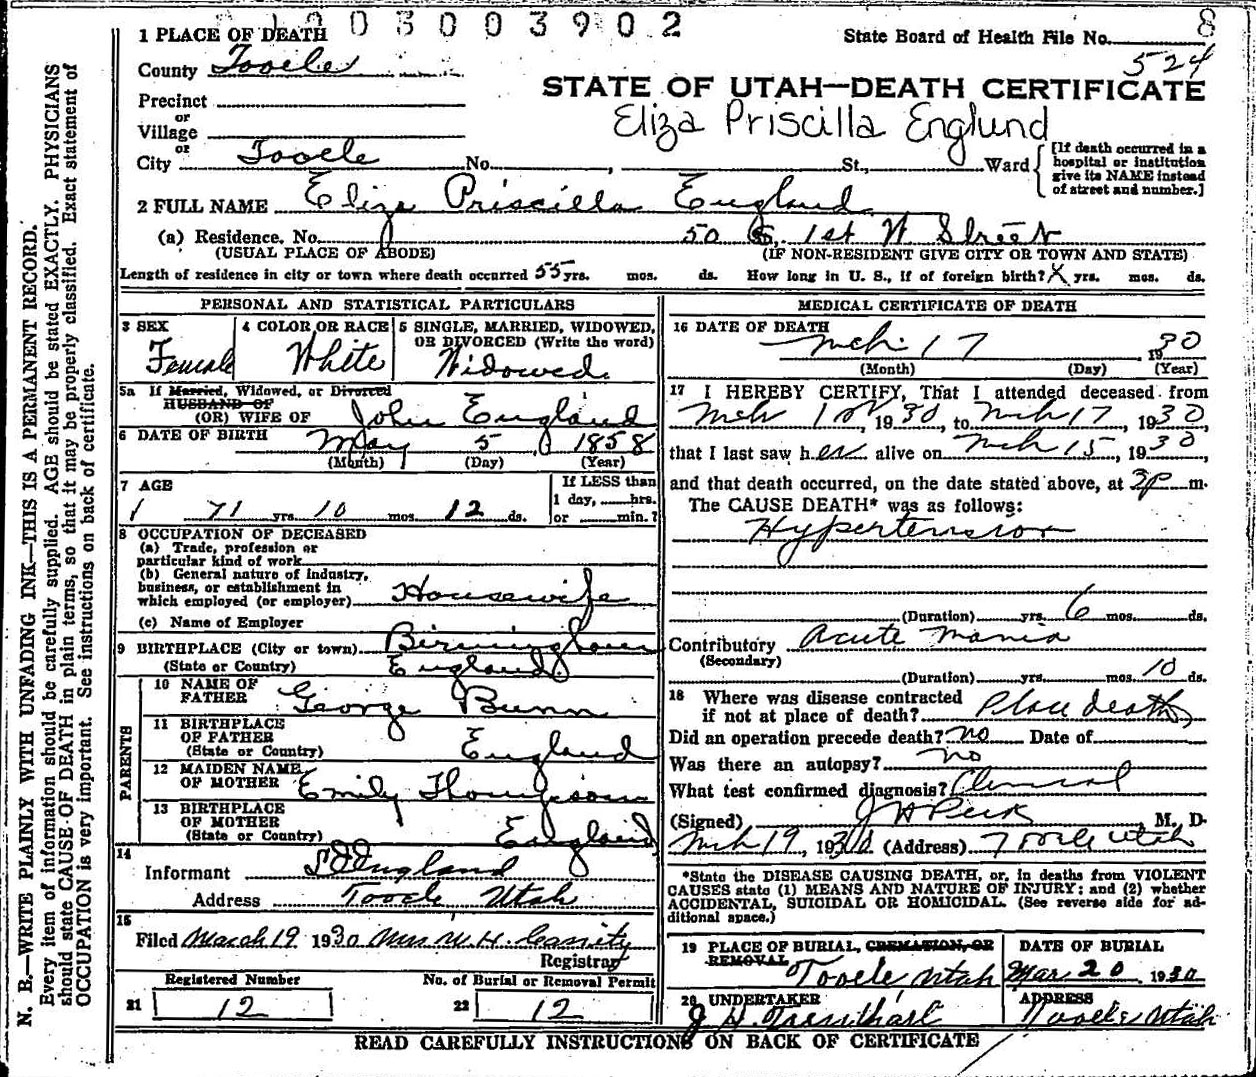 3003902
8
1 PLACE OF DEATH
State Board of Health File No.
524
County Tooele
STATE OF UTAH—DEATH CERTIFICATE
Precinct
or
Village
Eliza Priscilla Englund
or
City Tooele No. , St., Ward
[If death occurred in a hospital or institution give its NAME instead of street and number.]
2 FULL NAME Eliza Priscilla England
(a) Residence. No. 50 S. 1st W Street
(USUAL PLACE OF ABODE) (IF NON-RESIDENT GIVE CITY OR TOWN AND STATE)
Length of residence in city or town where death occurred 55 yrs. mos. ds. How long in U. S., if of foreign birth? X yrs. mos. ds.
PERSONAL AND STATISTICAL PARTICULARS
3 SEX
Female
4 COLOR OR RACE
White
5 SINGLE, MARRIED, WIDOWED, OR DIVORCED (Write the word)
Widowed
5a If Married, Widowed, or Divorced
HUSBAND OF
(OR) WIFE OF John England
6 DATE OF BIRTH May 5, 1858
(Month) (Day) (Year)
7 AGE
71 yrs. 10 mos. 12 ds.
If LESS than
1 day, hrs.
or min.?
8 OCCUPATION OF DECEASED
(a) Trade, profession or
particular kind of work
(b) General nature of industry,
business, or establishment in
which employed (or employer) Housewife
(c) Name of Employer
9 BIRTHPLACE (City or town) Birmingham
(State or Country) England
PARENTS
10 NAME OF FATHER George Bunn
11 BIRTHPLACE OF FATHER
(State or Country) England
12 MAIDEN NAME OF MOTHER Emily Thompson
13 BIRTHPLACE OF MOTHER
(State or Country) England
14
Informant England
Address Tooele Utah
15
Filed March 19 1930 Mrs W. H. Cassity
Registrar
Registered Number
21 12
No. of Burial or Removal Permit
22 12
MEDICAL CERTIFICATE OF DEATH
16 DATE OF DEATH
Mch 17 1930
(Month) (Day) (Year)
17 I HEREBY CERTIFY, That I attended deceased from
Mch 1st, 1930, to Mch 17, 1930,
that I last saw her alive on Mch 15, 1930,
and that death occurred, on the date stated above, at 3p m.
The CAUSE DEATH* was as follows:
Hypertension
(Duration) yrs. 6 mos. ds.
Contributory Acute Mania
(Secondary)
(Duration) yrs. mos. 10 ds.
18 Where was disease contracted
if not at place of death? Place death
Did an operation precede death? no Date of
Was there an autopsy? no
What test confirmed diagnosis? Clinical
(Signed) J H Peck, M. D.
Mch 19, 1930. (Address) Tooele Utah
*State the DISEASE CAUSING DEATH, or, in deaths from VIOLENT
CAUSES state (1) MEANS AND NATURE OF INJURY; and (2) whether
ACCIDENTAL, SUICIDAL OR HOMICIDAL. (See reverse side for ad-
ditional space.)
19 PLACE OF BURIAL, CREMATION, OR
REMOVAL Tooele, Utah
DATE OF BURIAL
Mar 20 1930
20 UNDERTAKER
J H
ADDRESS
Tooele Utah
READ CAREFULLY INSTRUCTIONS ON BACK OF CERTIFICATE
N. B.—WRITE PLAINLY WITH UNFADING INK—THIS IS A PERMANENT RECORD.
Every item of information should be carefully supplied. AGE should be stated EXACTLY. PHYSICIANS
should state CAUSE OF DEATH in plain terms, so that it may be properly classified. Exact statement of
OCCUPATION is very important. See instructions on back of certificate.